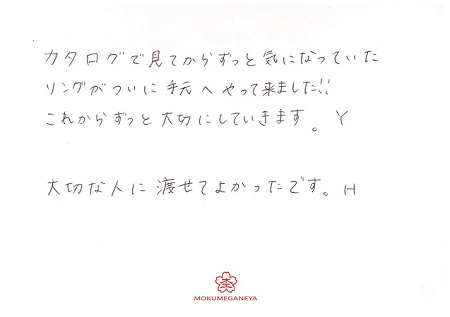 カタログで見てからずっと気になっていた
リングがついに手元へやって来ました!!
これからずっと大切にしていきます。 Y
大切な人に渡せてよかったです。 H
MOKUMEGANEYA